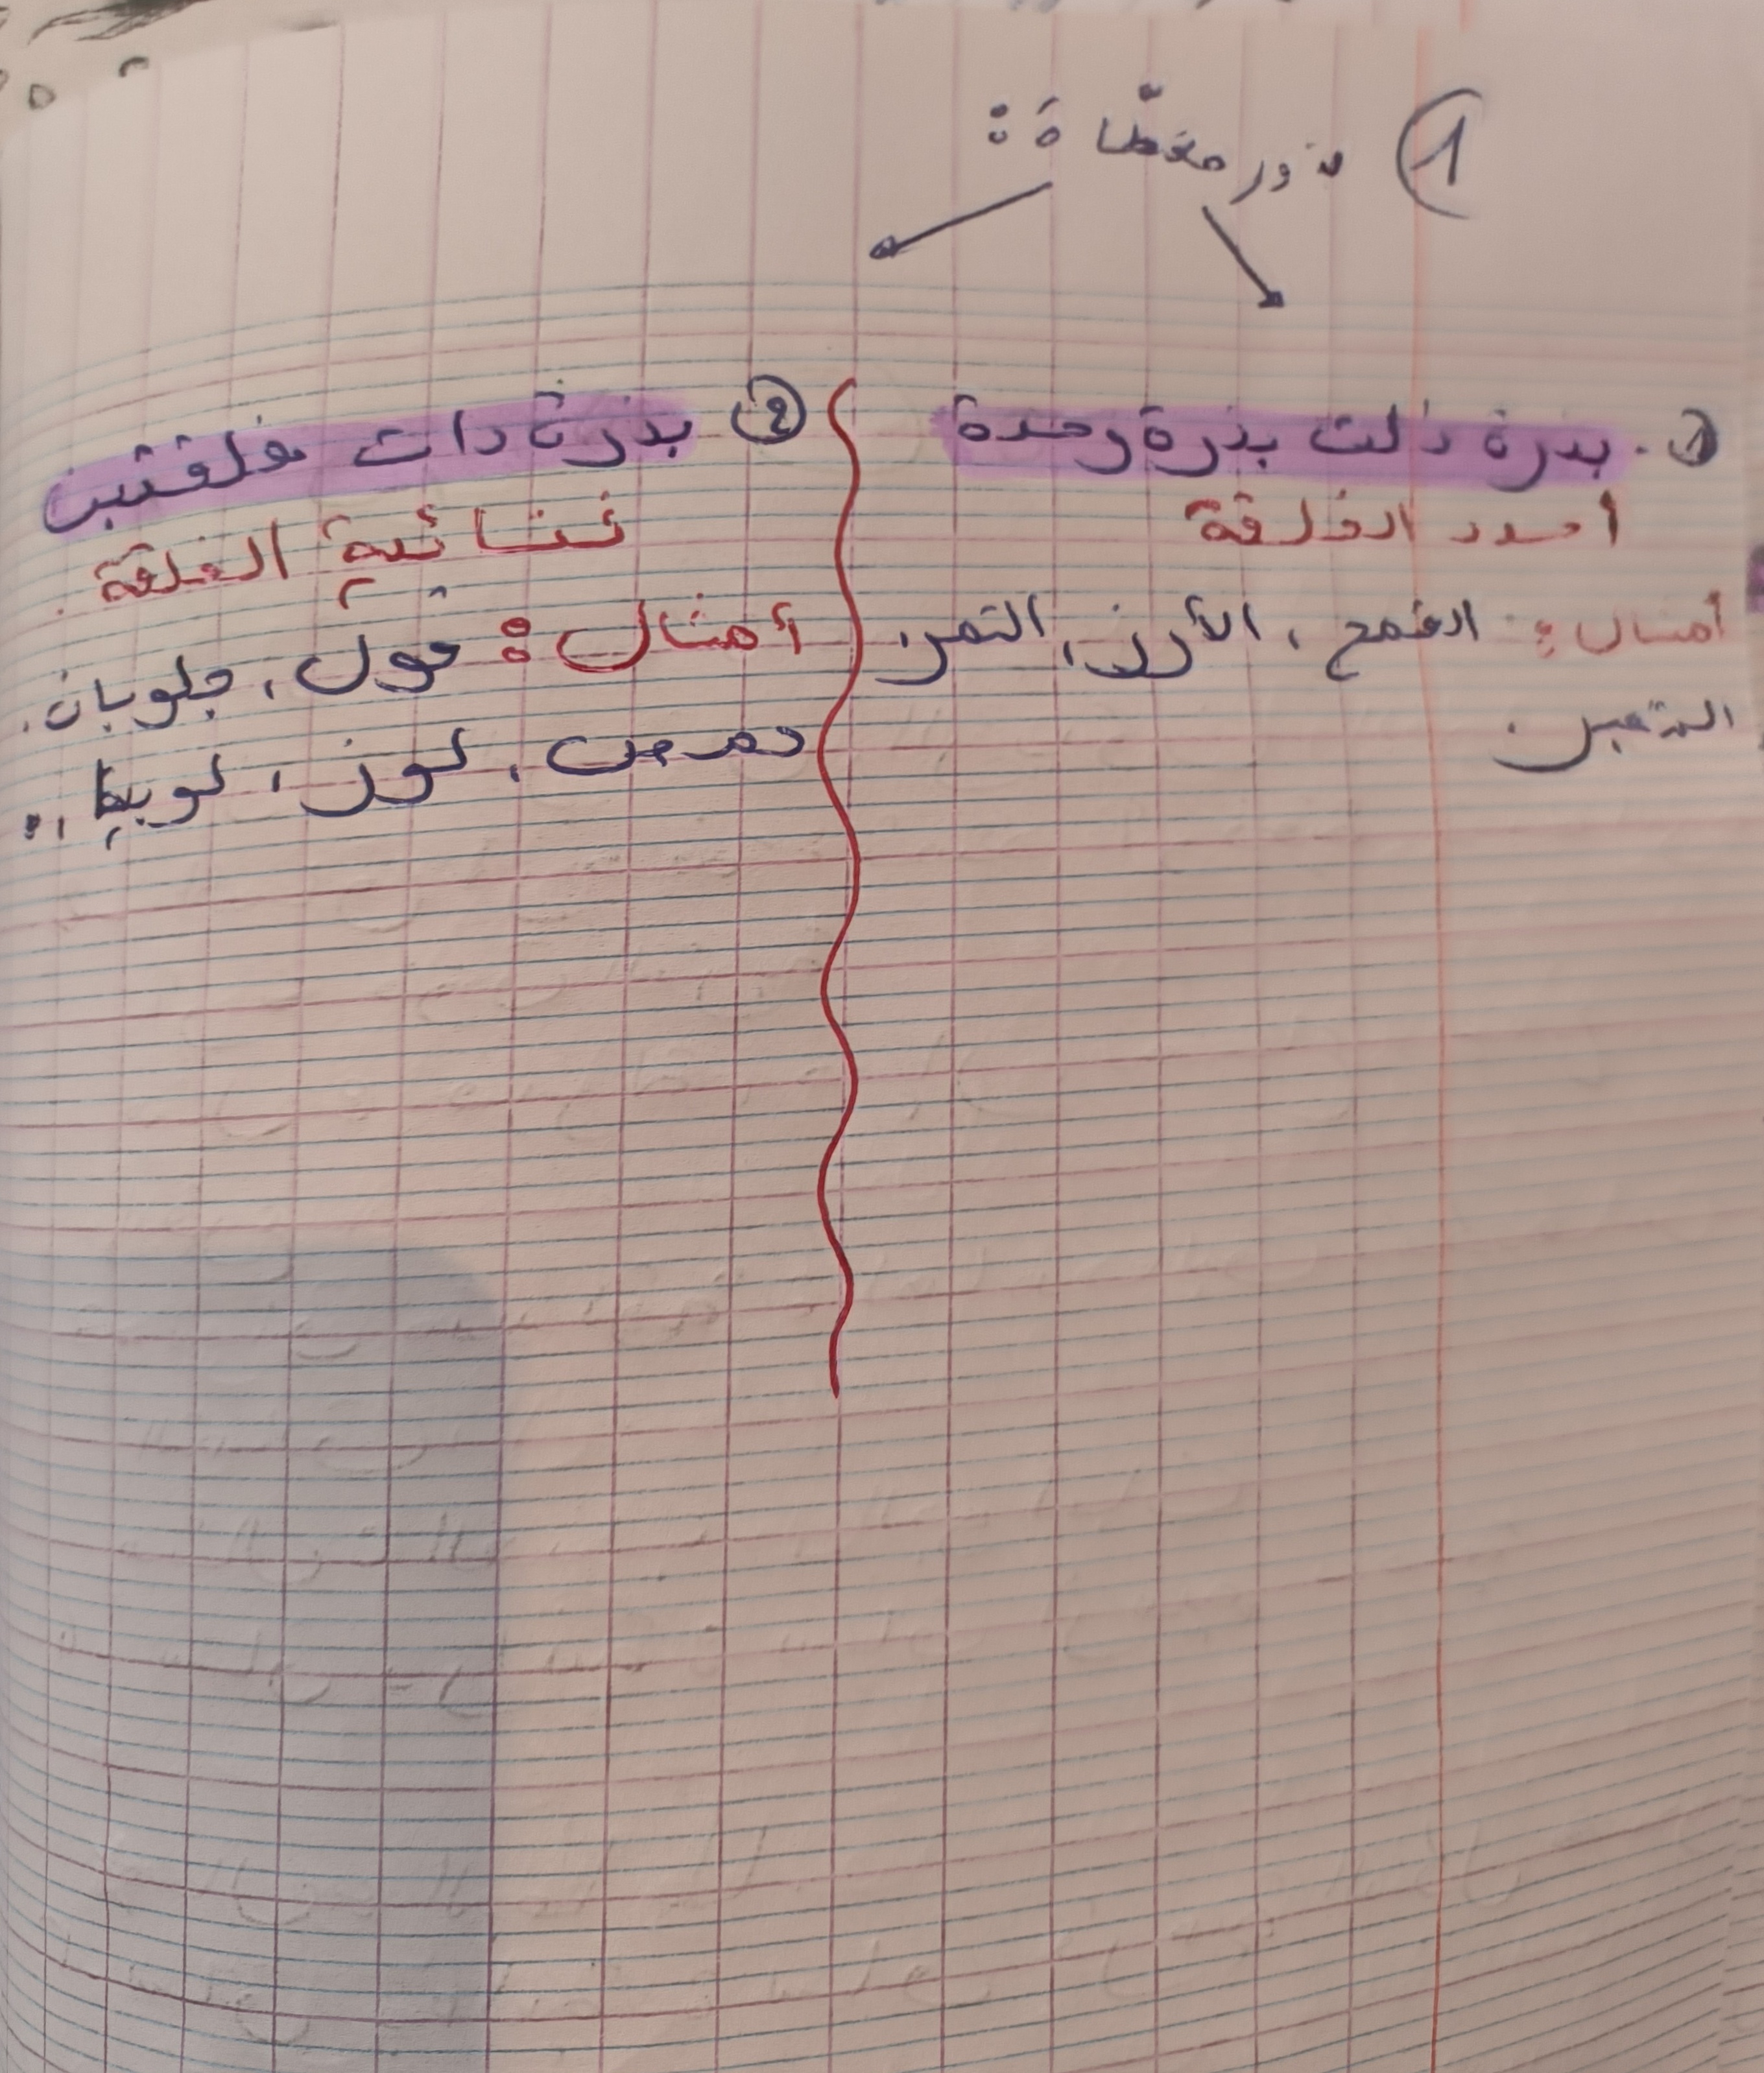 ① بذور مغطّاة:
①. بذرة ذات بذرة وحدة
أحدد الفلقة
أمثال: القمح، الأرز، التمر.
② بذرة دات فلقتين
ثنائية الفلقة.
أمثال: فول، جلوبان.
حمص، لوز، لوبيا،